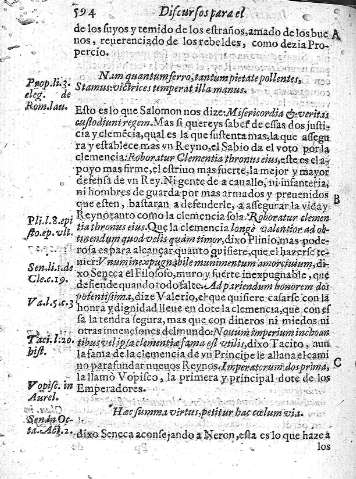 594 Discursos para el
de los suyos y temido de los estraños, amado de los bue A
nos, reuerenciado de los rebeldes, como dezia Pro-
percio.
Prop. li. 3. Nam quantum ferro, tantum pietate pollentes,
eleg. de Stamus: victrices temperat illa manus.
Rom. lau.
Esto es lo que Salomon nos dize: Misericordia & veritas
custodiunt regem. Mas si quereys saber de essas dos justi
cia y clemēcia, qual es la que sustenta mas, la que assegu
ra y establece mas vn Reyno, el Sabio da el voto por la
clemencia: Roboratur Clementia thronus eius, este es el a-
poyo mas firme, el estriuo mas fuerte, la mejor y mayor
defensa de vn Rey. Ni gente de a cauallo, ni infanteria,
ni hombres de guarda por mas armados y preuenidos B
que esten, bastaran a defenderle, a assegurar la vida y
Reyno tanto como la clemencia sola: Roboratur clemen
Pli. l. 8. epi tia thronus eius. Que la clemencia longè valentior ad ob-
sto. ep. vlt. tinendum quod velis quàm timor, dixo Plinio, mas pode-
rosa es para alcançar quanto quisiere, que el hazerse te-
Sen. li. 1. de mer: & vnum inexpugnabile munimentum amor ciuium, di-
Cle. c. 19. xo Seneca el Filosofo, muro y fuerte inexpugnable, que
defiende quando todo falte. Ad pariendum honorem do
Va. l. 5. c. 3 potentissima, dize Valerio, el que quisiere casarse con la
honra y dignidad lleue en dote la clemencia, que con es
sa la tendra segura, mas que con dineros ni miedos ni
otras inuenciones del mundo. Nouum imperium inchoan
Taci. l. 20. tibus vel ipsa clementiæ fama est vtilis, dixo Tacito, aun
hist. la fama de la clemencia de vn Principe le allana el cami
no para fundar nueuos Reynos. Imperatorum dos prima, C
Vopisc. in la llamò Vopisco, la primera y principal dote de los
Aurel. Emperadores.
Hæc summa virtus, petitur hac cœlum via.
Seneda Oc-
ta. Act. 2. dixo Seneca aconsejando a Neron, esta es lo que haze a
los